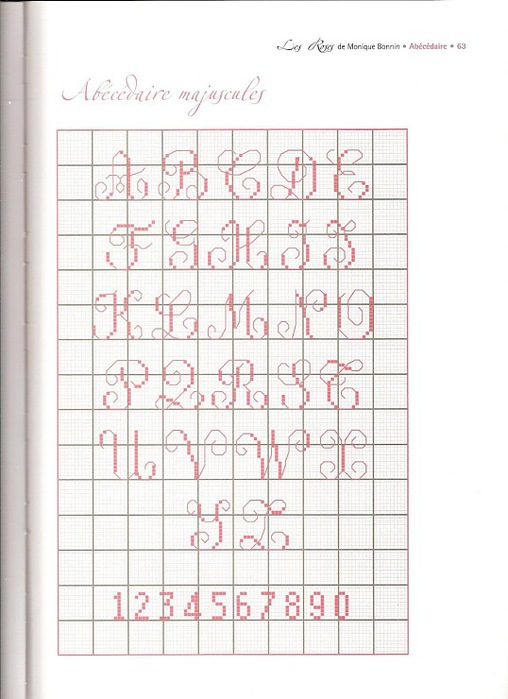 Les Roses de Monique Bonnin • Abécédaire • 63
Abécédaire majuscules
A B C D E
F G H I J
K L M N O
P Q R S T
U V W X
Y Z
1234567890